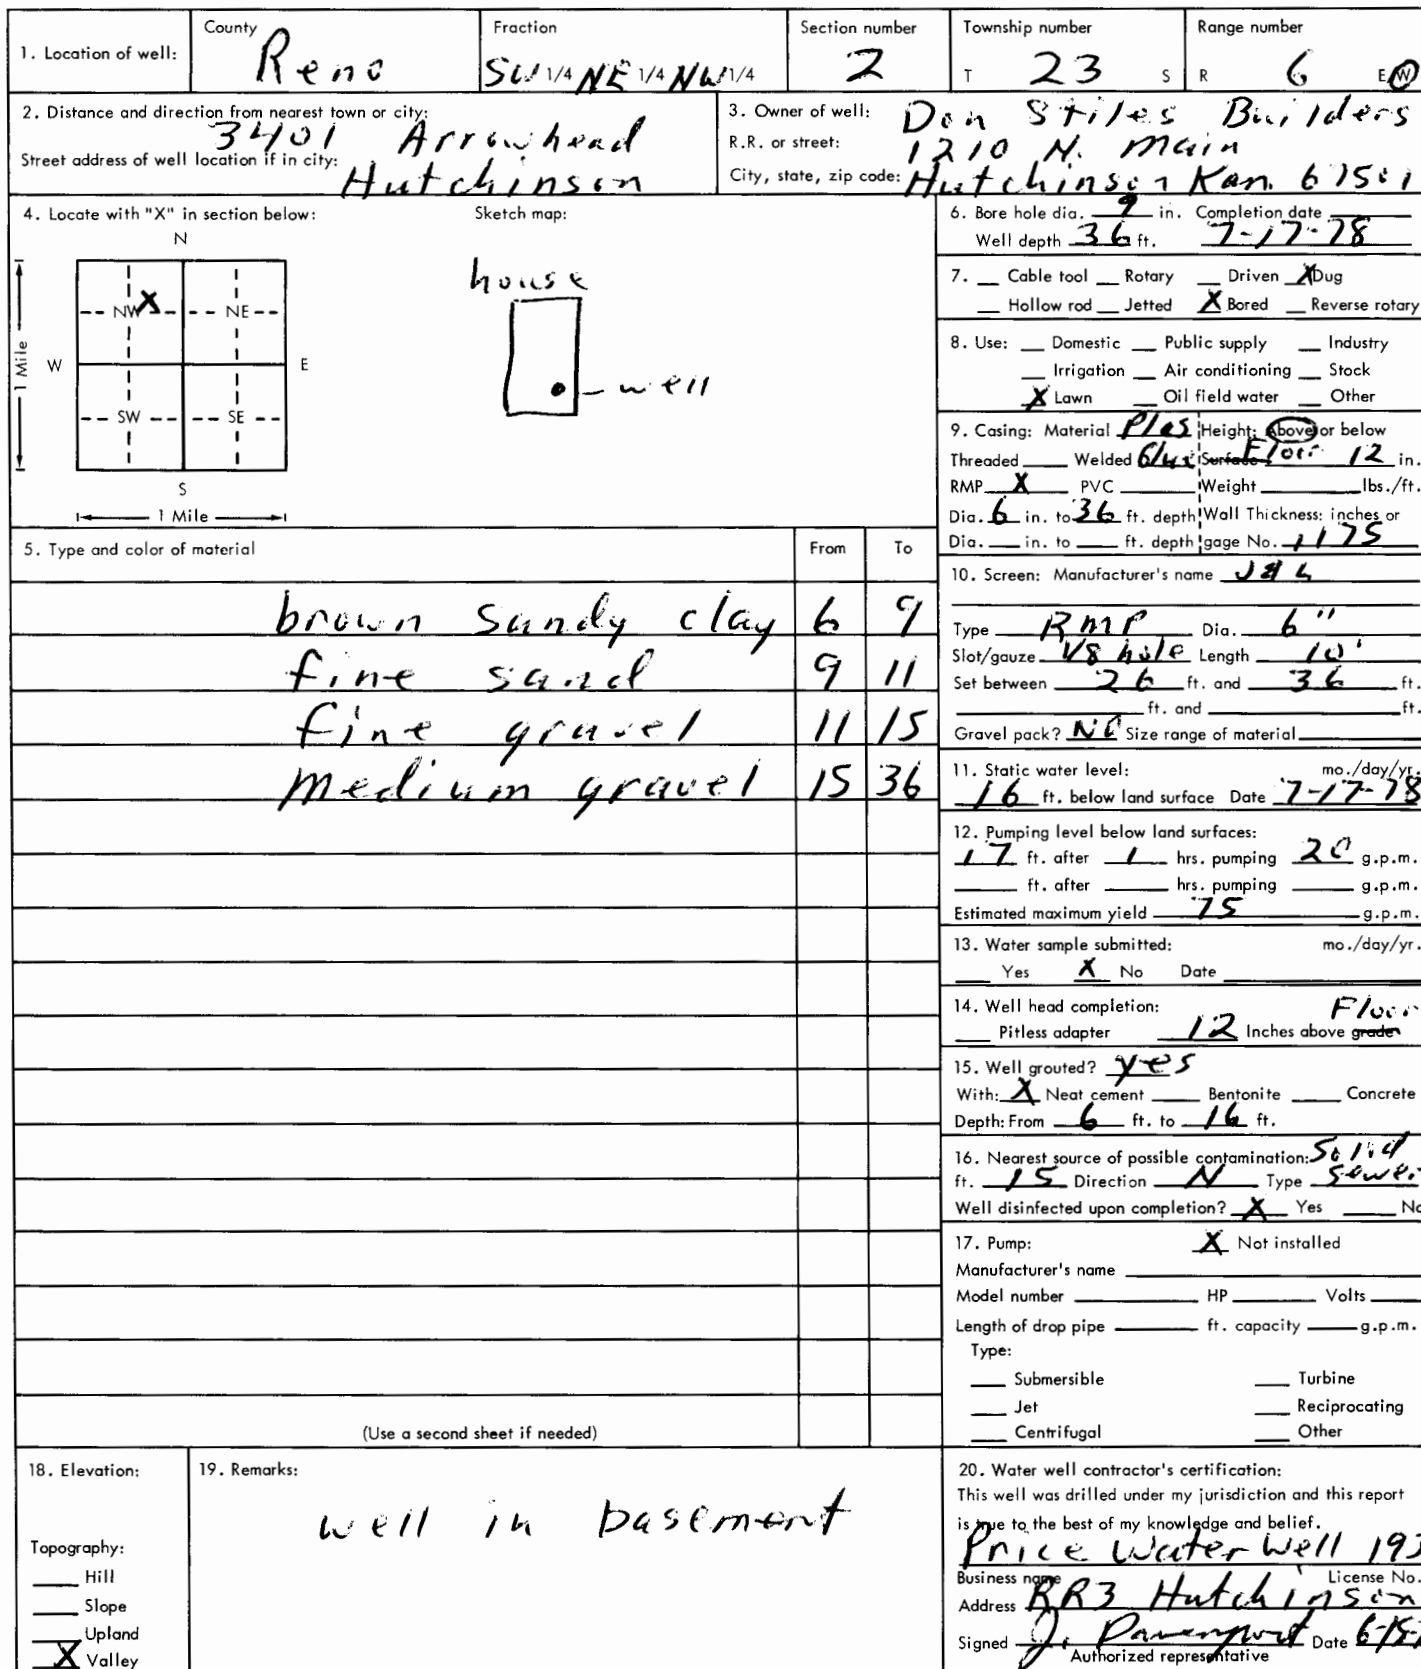 1. Location of well: County Reno Fraction SW 1/4 NE 1/4 NW 1/4 Section number 2 Township number T 23 S Range number R 6 E/W
2. Distance and direction from nearest town or city: 3401 Arrowhead
Street address of well location if in city: Hutchinson
3. Owner of well: Don Stiles Builders
R.R. or street: 1210 N. Main
City, state, zip code: Hutchinson Kan. 67501
4. Locate with "X" in section below:
N
NW X NE
W E
SW SE
S
1 Mile
1 Mile
Sketch map:
house
well
5. Type and color of material From To
brown sandy clay 6 9
fine sand 9 11
fine gravel 11 15
medium gravel 15 36
(Use a second sheet if needed)
6. Bore hole dia. 9 in. Completion date
Well depth 36 ft. 7-17-78
7. Cable tool Rotary Driven X Dug
Hollow rod Jetted X Bored Reverse rotary
8. Use: Domestic Public supply Industry
Irrigation Air conditioning Stock
X Lawn Oil field water Other
9. Casing: Material Plas Height: Above or below
Threaded Welded Glue Surface Floor 12 in.
RMP X PVC Weight lbs./ft.
Dia. 6 in. to 36 ft. depth Wall Thickness: inches or
Dia. in. to ft. depth gage No.
10. Screen: Manufacturer's name
Type RMP Dia. 6"
Slot/gauze 1/8 hole Length 10'
Set between 26 ft. and 36 ft.
ft. and ft.
Gravel pack? NO Size range of material
11. Static water level: mo./day/yr.
16 ft. below land surface Date 7-17-78
12. Pumping level below land surfaces:
17 ft. after 1 hrs. pumping 20 g.p.m.
ft. after hrs. pumping g.p.m.
Estimated maximum yield 75 g.p.m.
13. Water sample submitted: mo./day/yr.
Yes X No Date
14. Well head completion: Floor
Pitless adapter 12 Inches above grade
15. Well grouted? yes
With: X Neat cement Bentonite Concrete
Depth: From 6 ft. to 16 ft.
16. Nearest source of possible contamination: Solid
ft. 15 Direction N Type sewer
Well disinfected upon completion? X Yes No
17. Pump: X Not installed
Manufacturer's name
Model number HP Volts
Length of drop pipe ft. capacity g.p.m.
Type:
Submersible Turbine
Jet Reciprocating
Centrifugal Other
18. Elevation:
Topography:
Hill
Slope
Upland
X Valley
19. Remarks:
well in basement
20. Water well contractor's certification:
This well was drilled under my jurisdiction and this report
is true to the best of my knowledge and belief.
Price Water Well 193
Business name License No.
Address RR3 Hutchinson
Signed J. Davenport Date 6-15-
Authorized representative